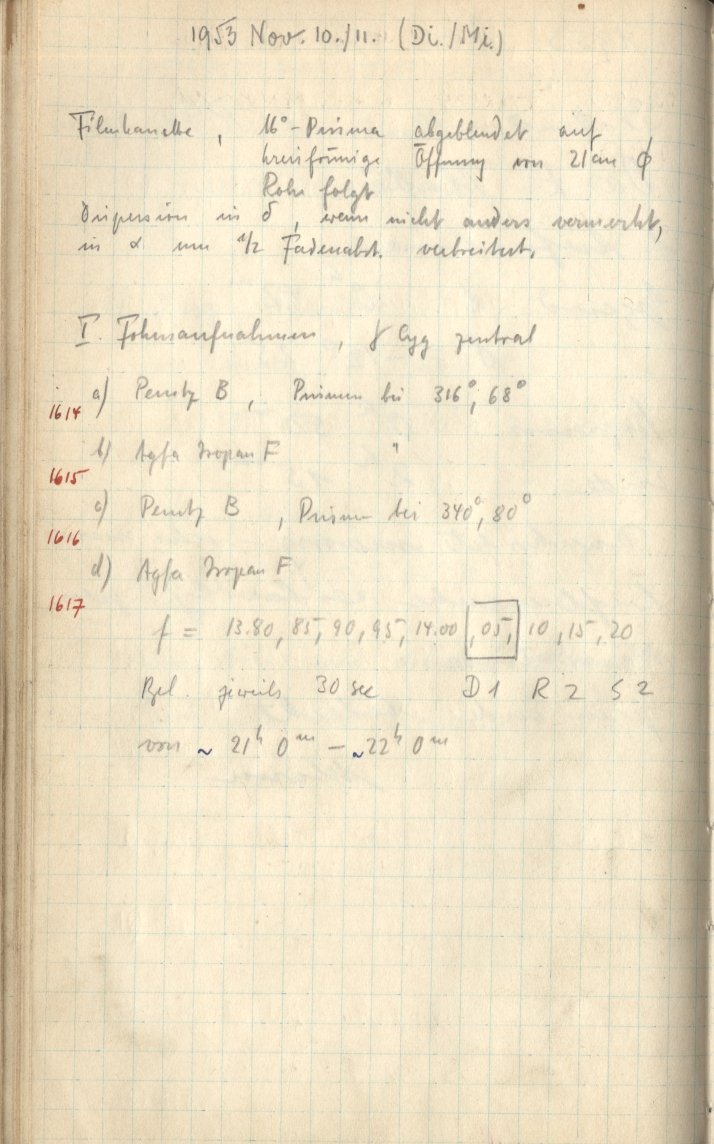 1953 Nov. 10./11. (Di./Mi.)
Filmkassette, 16°-Prisma abgeblendet auf
kreisförmige Öffnung von 21 cm ϕ
Rohr folgt
Dispersion in δ, wenn nicht anders vermerkt,
in α um 1/2 Fadenabst. verbreitert.
I. Fokusaufnahmen, γ Cyg zentral
a) Perutz B, Prismen bei 316°, 68°
1614
b) Agfa Isopan F "
1615
c) Perutz B, Prismen bei 340°, 80°
1616
d) Agfa Isopan F
1617
f = 13.80, 85, 90, 95, 14.00, 05, 10, 15, 20
Bel. jeweils 30 sec D1 R2 S2
von ~ 21ʰ 0ᵐ – ~22ʰ 0ᵐ